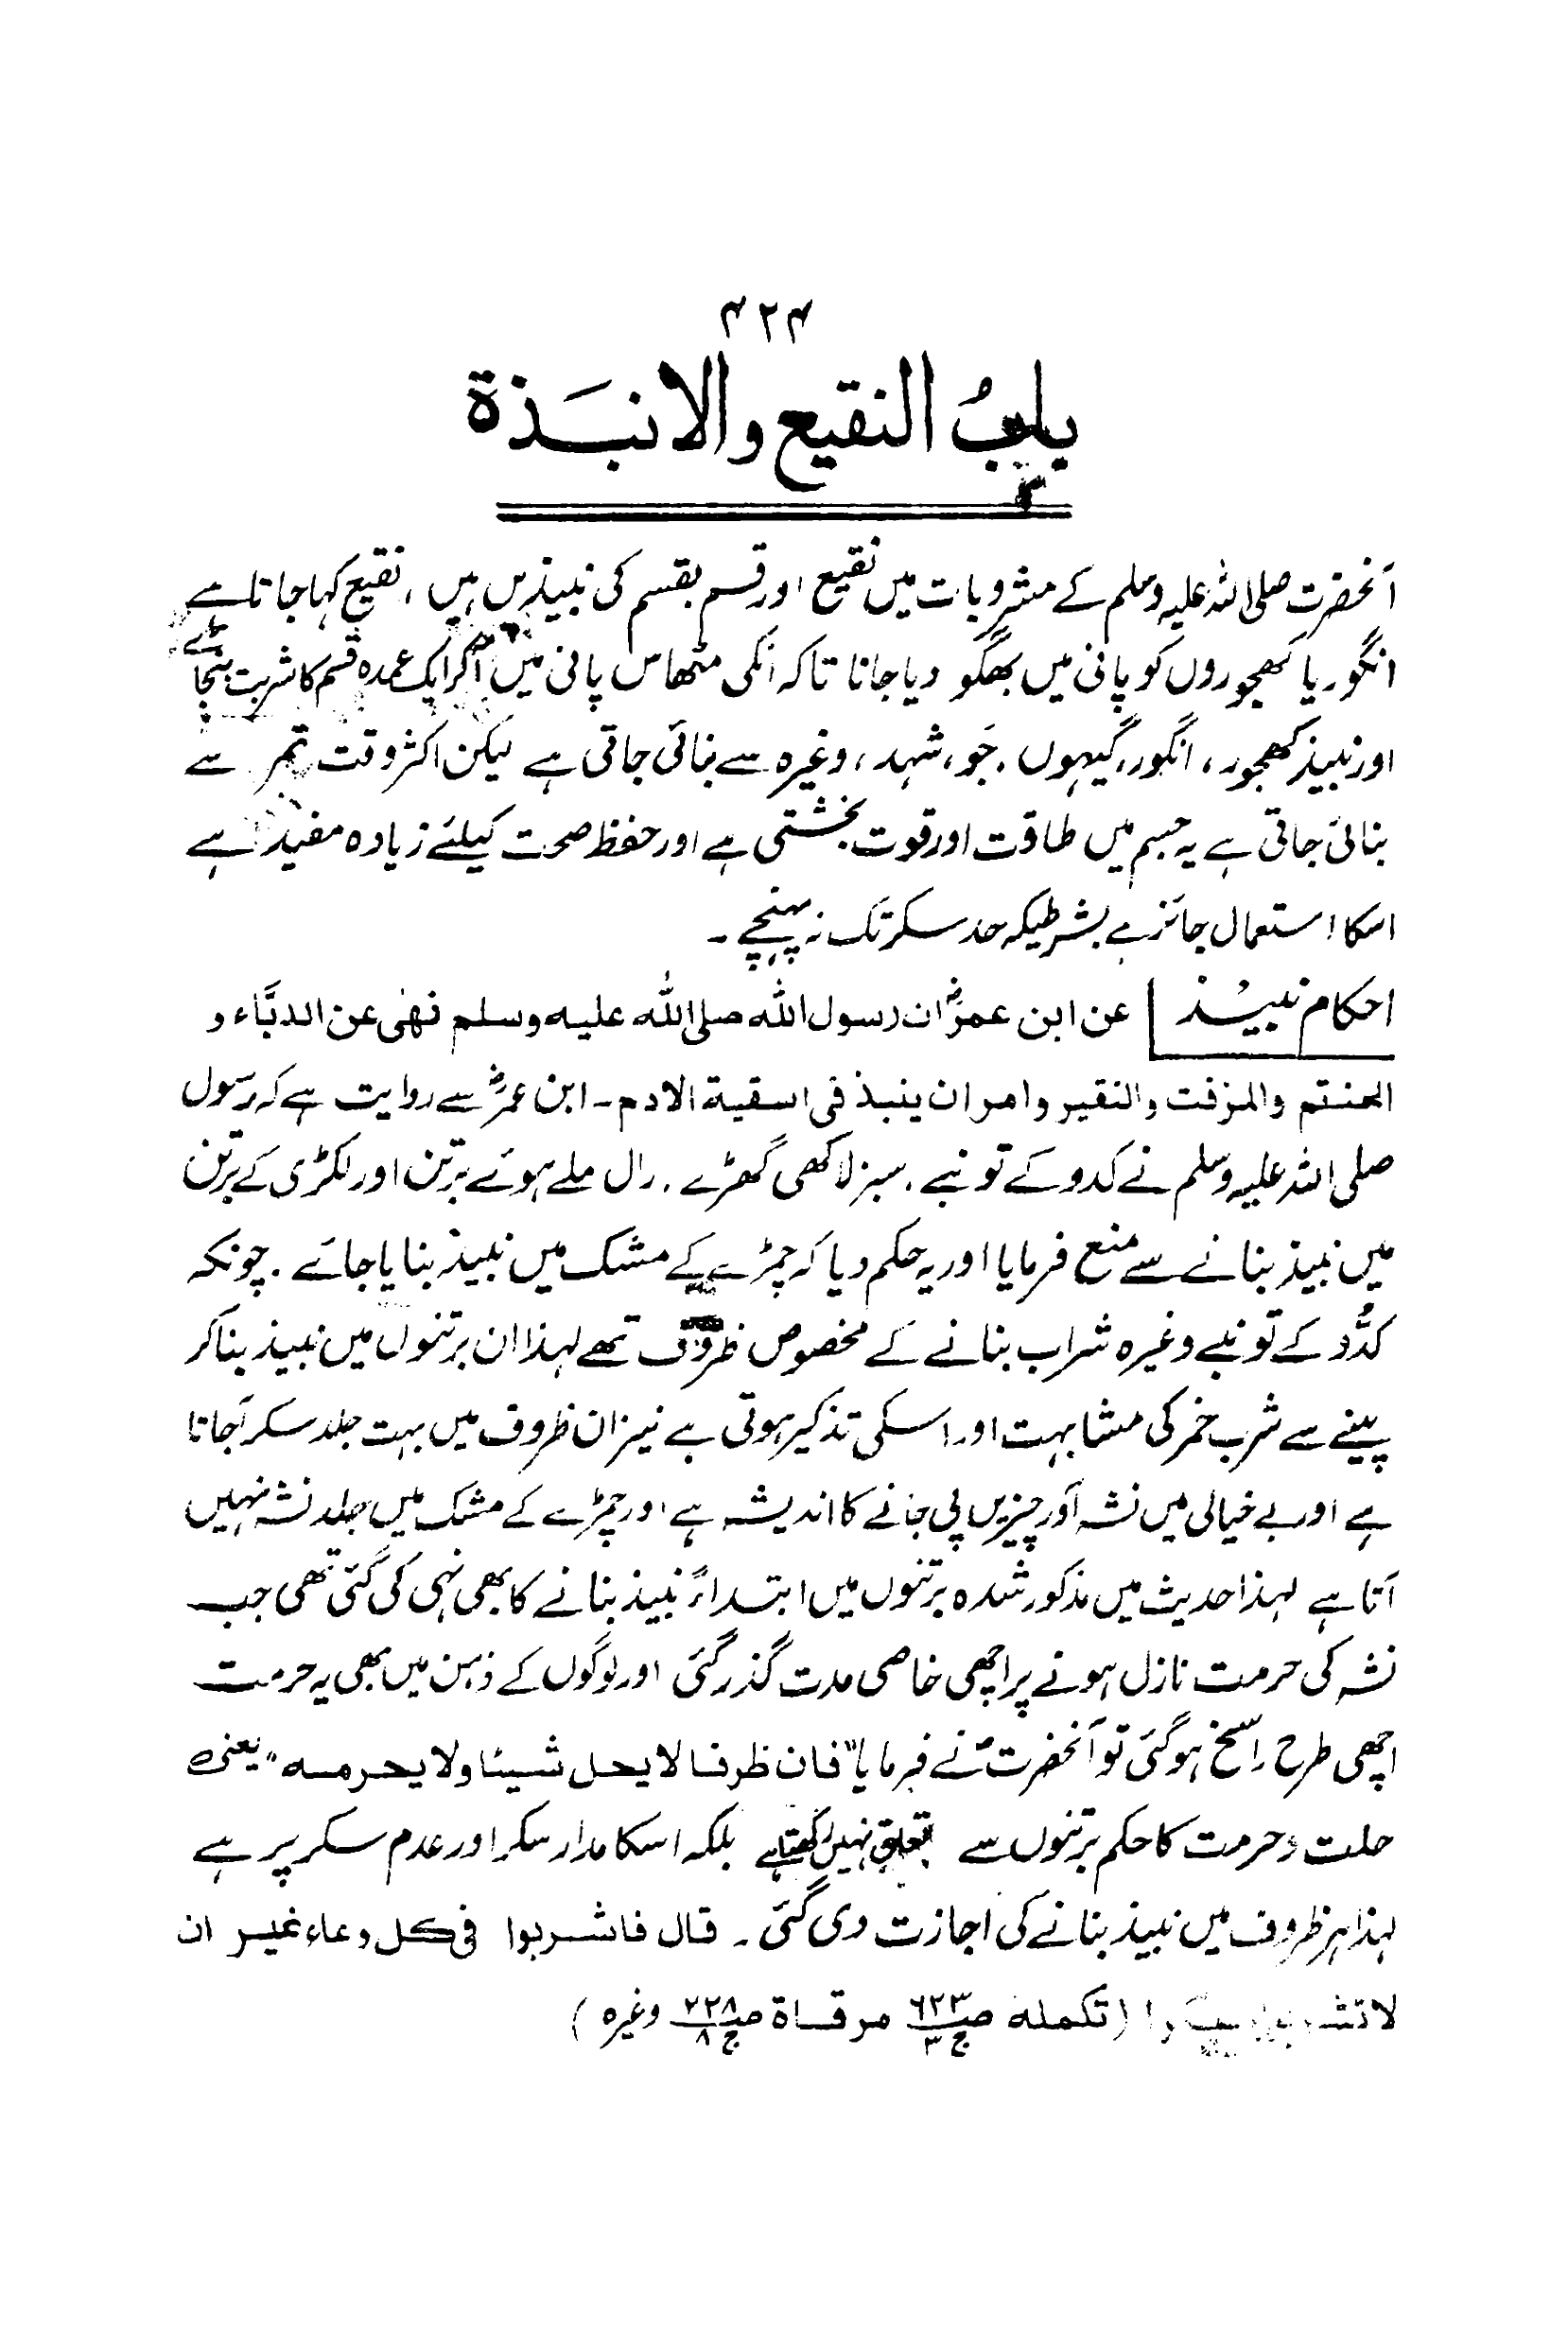 ۴۲۴
بابُ النقیع والانبَذۃ
آنحضرت صلی اللہ علیہ وسلم کے مشروبات میں نقیع اور قسم بقسم کی نبیذیں ہیں ، نقیع کہا جاتا ہے
انگور یا کھجوروں کو پانی میں بھگو دیا جانا تاکہ انکی مٹھاس پانی میں آکر ایک عمدہ قسم کا شربت بنجائے
اور نبیذ کھجور ، انگور، گیہوں ، جَو ، شہد ، وغیرہ سے بنائی جاتی ہے لیکن اکثر وقت تمر سے
بنائی جاتی ہے یہ جسم میں طاقت اور قوت بخشتی ہے اور حفظ صحت کیلئے زیادہ مفید ہے
اسکا استعمال جائز ہے بشرطیکہ حد سکر تک نہ پہنچے ۔
احکام نبیذ عن ابن عمرؓ ان رسول اللہ صلی اللہ علیہ وسلم نھٰی عن الدبَّاء و
الحنتم والمزفت والنقیر وامر ان ینبذ فی اسقیۃ الادم۔ ابن عمرؓ سے روایت ہے کہ رسول
صلی اللہ علیہ وسلم نے کدو کے تونبے ، سبز لاکھی گھڑے ، رال ملے ہوئے برتن اور لکڑی کے برتن
میں نبیذ بنانے سے منع فرمایا اور یہ حکم دیا کہ چمڑے کے مشک میں نبیذ بنایا جائے ۔ چونکہ
کدُّو کے تونبے وغیرہ شراب بنانے کے مخصوص ظروف تھے لہذا ان برتنوں میں نبیذ بناکر
پینے سے شرب خمر کی مشابہت اور اسکی تذکیر ہوتی ہے نیز ان ظروف میں بہت جلد سکر آجاتا
ہے اور بے خیالی میں نشہ آور چیزیں پی جانے کا اندیشہ ہے اور چمڑے کے مشک میں جلد نشہ نہیں
آتا ہے لہذا حدیث میں مذکور شدہ برتنوں میں ابتداءً نبیذ بنانے کا بھی نہی کی گئی تھی جب
نشہ کی حرمت نازل ہونے پر اچھی خاصی مدت گذر گئی اور لوگوں کے ذہن میں بھی یہ حرمت
اچھی طرح راسخ ہوگئی تو آنحضرتؐ نے فرمایا "فان ظرفا لا یحل شیئا ولا یحرمه" یعنی
حلت وحرمت کا حکم برتنوں سے تعلق نہیں رکھتا ہے بلکہ اسکا مدار سکر اور عدم سکر پر ہے
لہذا ہر ظروف میں نبیذ بنانے کی اجازت دی گئی ۔ قال فاشربوا فی کل وعاء غیر ان
لا (تکملہ ص۶۲۳ ج۳ مرقاۃ ص۲۲۸ ج۸ وغیرہ )